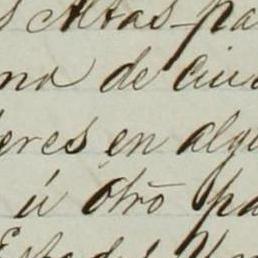 s Altas pa
na de ciu
eres en algu
ú otrō pa